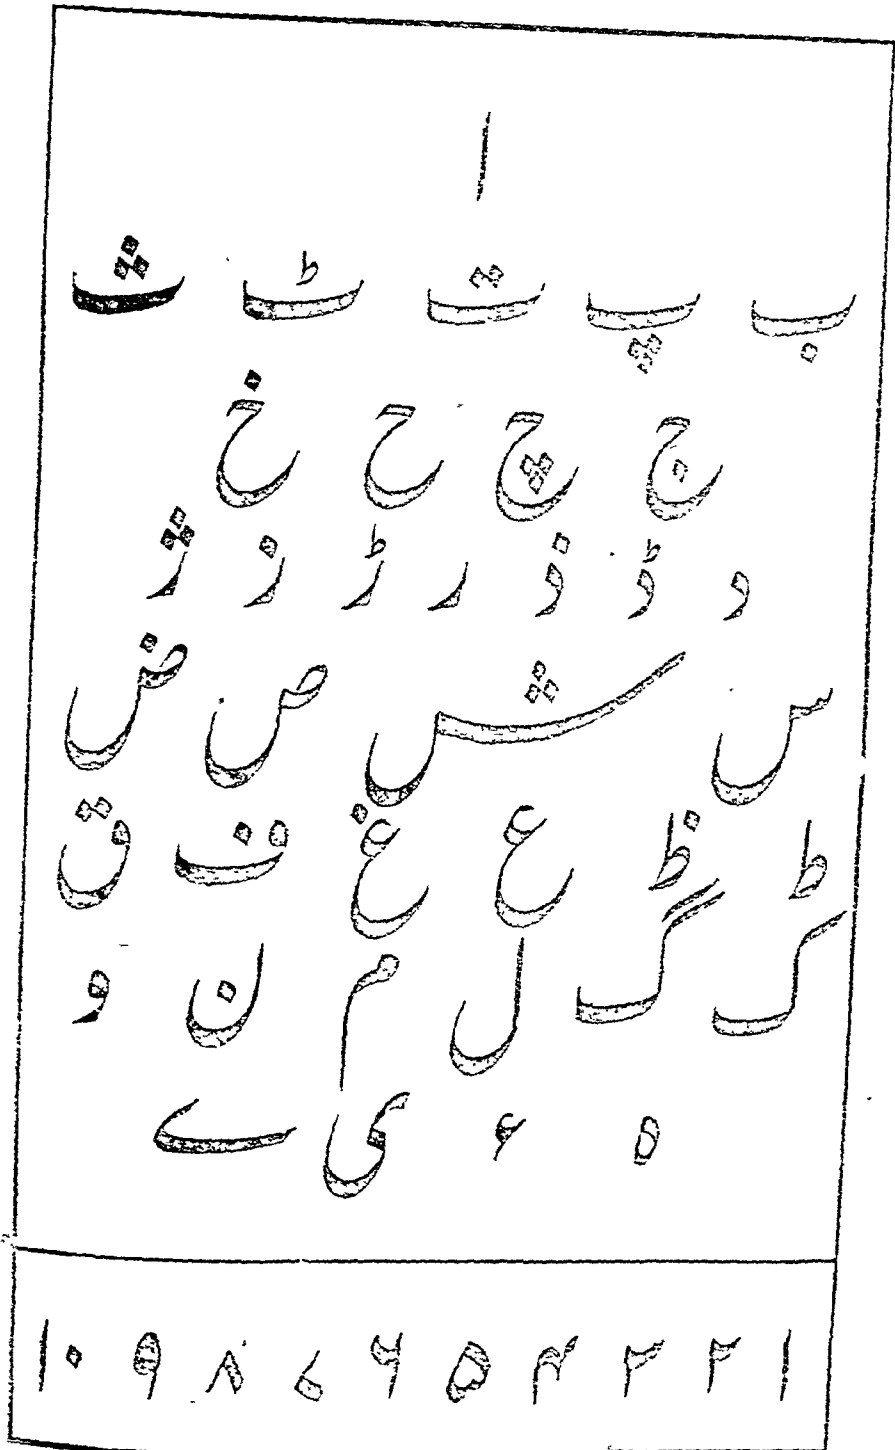 ا
ب پ ت ٹ ث
ج چ ح خ
د ڈ ذ ر ڑ ز ژ
س ش ص ض
ط ظ ع غ ف ق
ک گ ل م ن و
ہ ء ی ے
۱ ۲ ۳ ۴ ۵ ۶ ۷ ۸ ۹ ۱۰